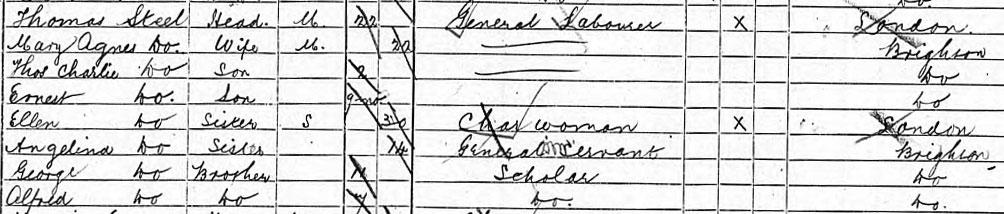 Thomas Steel Head. M. 22 General Labourer X London
Mary Agnes Do. Wife M. 20 Brighton
Thos Charlie Do Son 2 Do
Ernest Do. Son 9 mo Do
Ellen Do Sister S 30 Char woman X London
Angelina Do Sister 14 General Servant Brighton
George Do Brother Scholar Do
Alfred Do Do Do. Do.